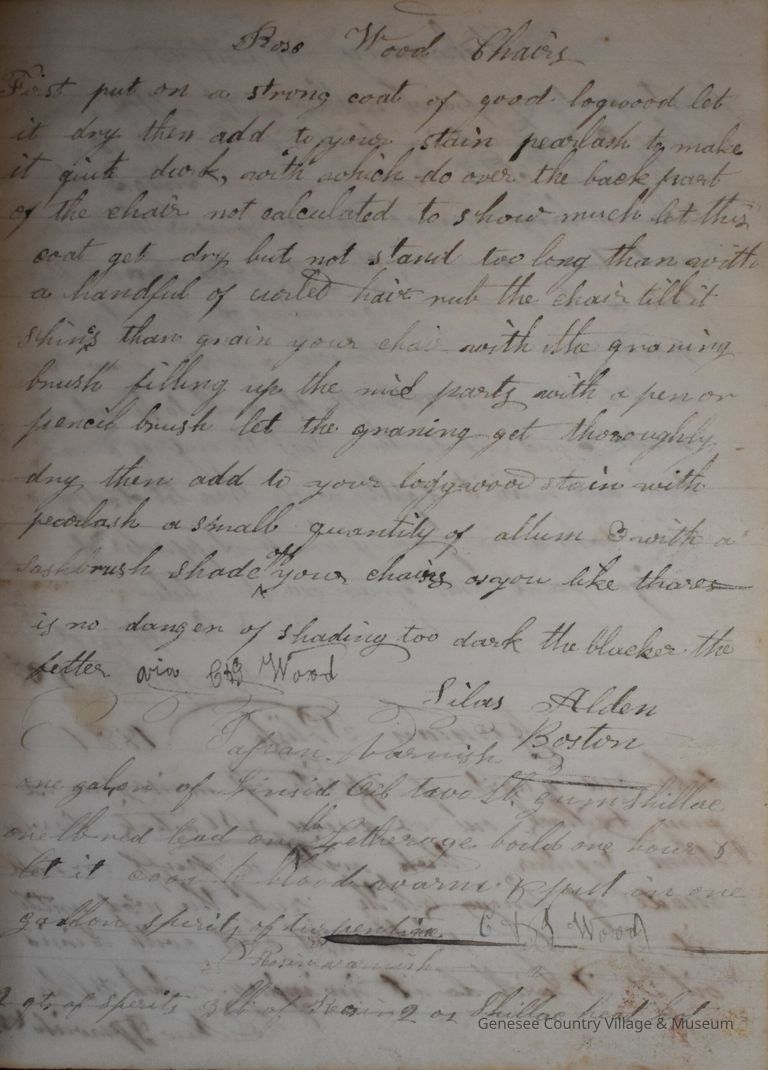 Rose Wood Chairs
First put on a strong coat of good logwood let
it dry then add to your stain pearlash to make
it quite dark, with which do over the back part
of the chair not calculated to show much let this
coat get dry but not stand too long than with
a handful of curled hair rub the chair till it
shines than grain your chair with the graning
brush filling up the mid parts with a pen or
pencil brush let the graning get thoroughly
dry then add to your logwood stain with
pearlash a small quantity of allum & with a
sashbrush shade off your chairs as you like thare
is no danger of shading too dark the blacker the
better Wood
Silas Alden
Boston
Japan Varnish
one galon of Linsid Oib two lb gum shillac
one lb red lead one lb Letherage boild one hour &
let it cool to blood warm & put in one
gallon spirits of turpentine Wood
Rosin varnish
2 qts of spirits 3 lb of or shillac
Genesee Country Village & Museum